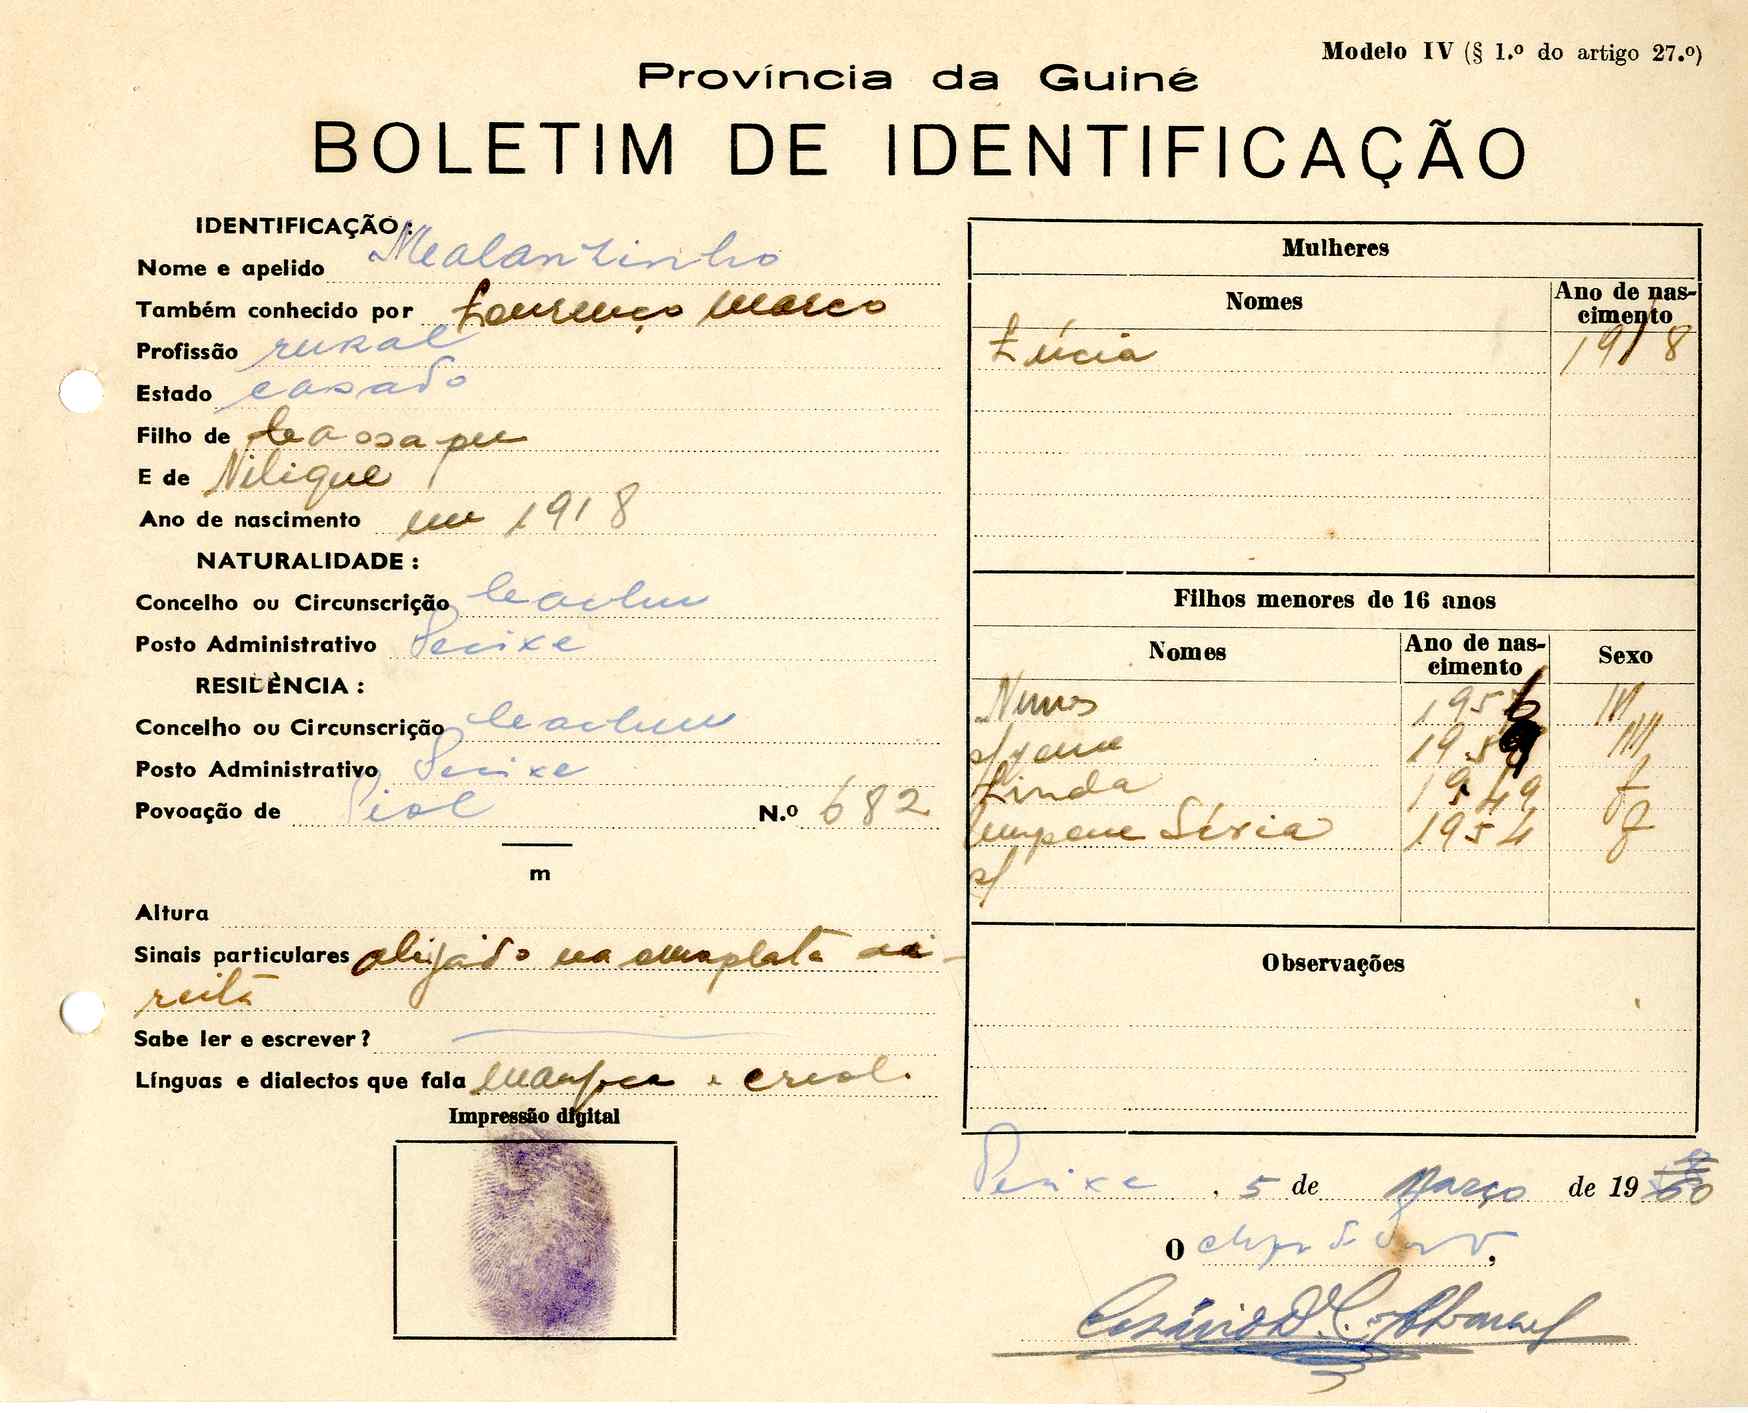 Modelo IV (§ 1.º do artigo 27.º)
Província da Guiné
BOLETIM DE IDENTIFICAÇÃO
IDENTIFICAÇÃO:
Nome e apelido Mealantinho
Também conhecido por Lourenço Marco
Profissão rural
Estado casado
Filho de
E de Nilique
Ano de nascimento em 1918
NATURALIDADE:
Concelho ou Circunscrição Cacheu
Posto Administrativo Pecixe
RESIDÊNCIA:
Concelho ou Circunscrição Cacheu
Posto Administrativo Pecixe
Povoação de N.º 682
m
Altura
Sinais particulares aleijado na omoplata di-
reita
Sabe ler e escrever?
Línguas e dialectos que fala manjaca e creol.
Impressão digital
Mulheres
Nomes Ano de nas-
cimento
Lúcia 1918
Filhos menores de 16 anos
Nomes Ano de nas-
cimento Sexo
Nunes 1956 M
M
Linda 1949 f
1954 f
Observações
Pecixe, 5 de Março de 1960
O chefe do posto,